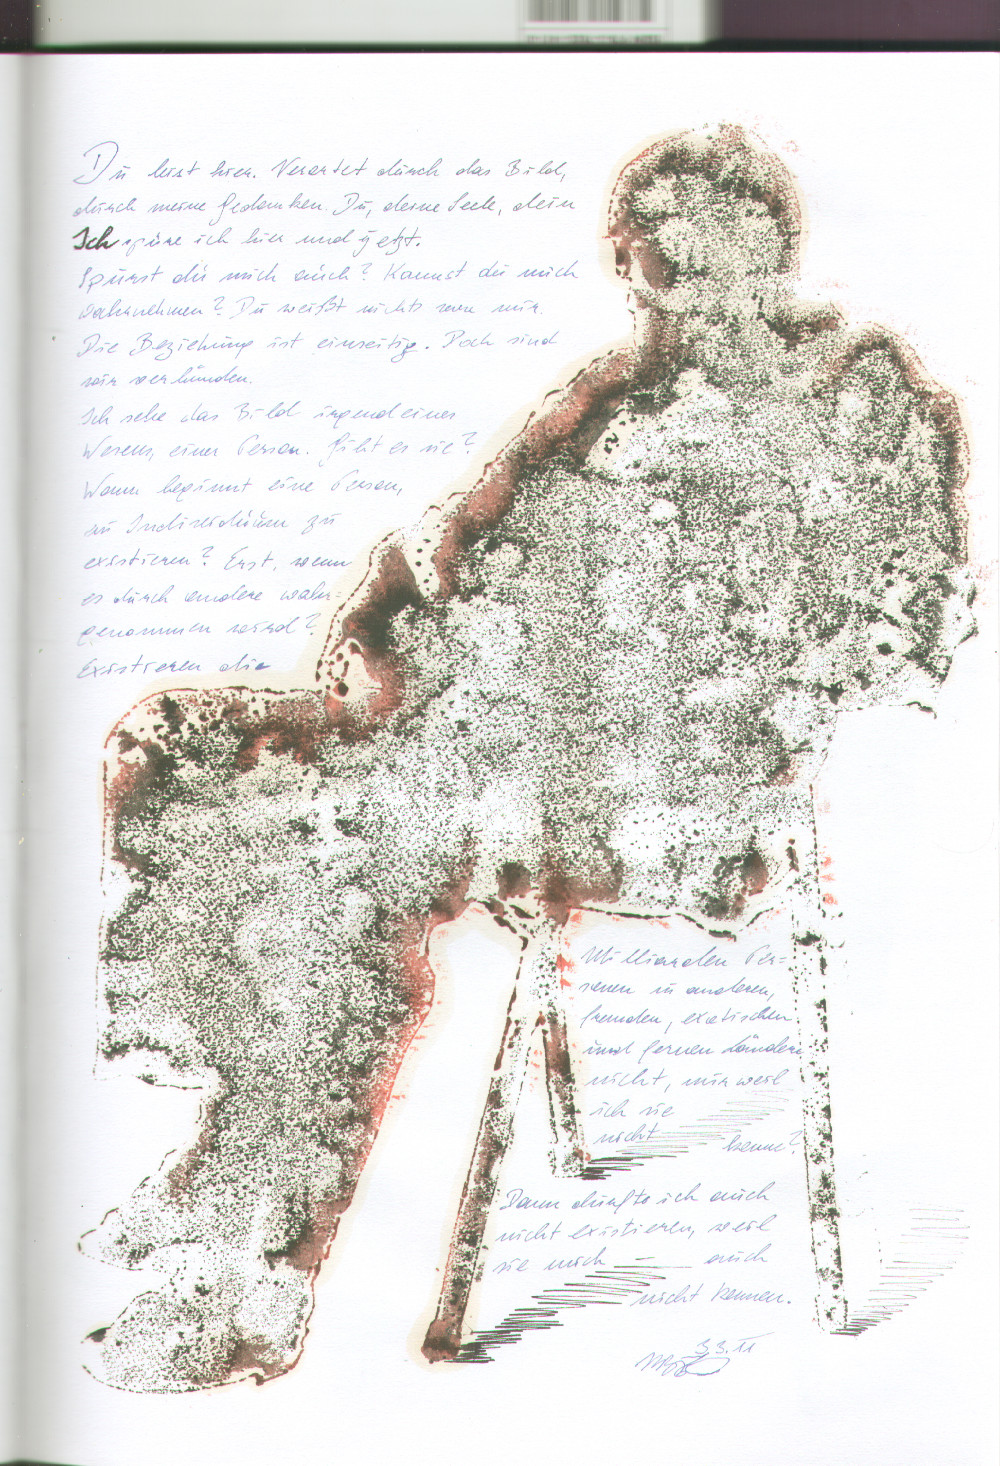 Du bist hier. Verortet durch das Bild,
durch meine Gedanken. Du, deine Seele, dein
Ich spüre ich hier und jetzt.
Spürst du mich auch? Kannst du mich
wahrnehmen? Du weißt nichts von mir.
Die Beziehung ist einseitig. Doch sind
wir verbunden.
Ich sehe das Bild irgendeines
Wesens, einer Person. Gibt es sie?
Wann beginnt eine Person,
ein Individuum zu
existieren? Erst, wenn
es durch andere wahr=
genommen wird?
Existieren die
Milliarden Per=
sonen in anderen,
fremden, exotischen
und fernen Ländern
nicht, nur weil
ich sie
nicht kenne?
Dann dürfte ich auch
nicht existieren, weil
sie mich auch
nicht kennen.
3.3.11